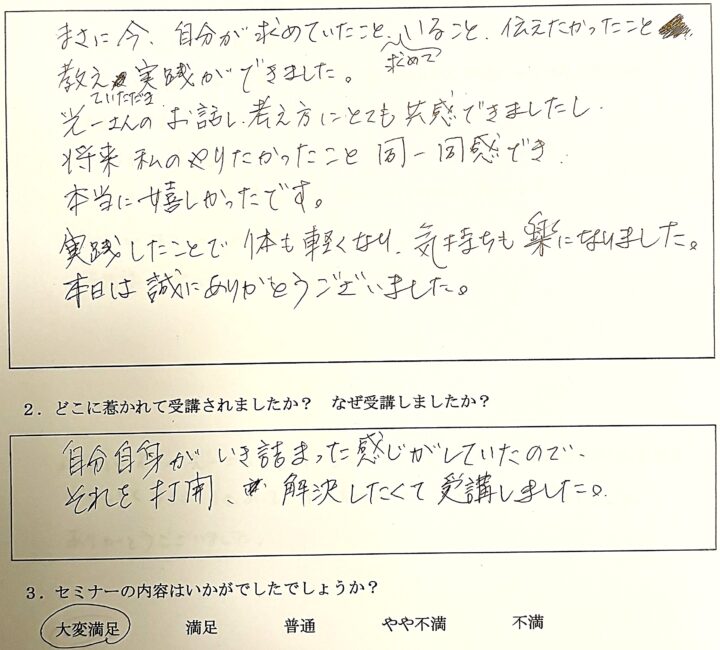 まさに今、自分が求めていたこと、いること、伝えたかったこと
求めて
教え、実践ができました。
ていただき
光一さんのお話し、考え方にとても共感できましたし、
将来私のやりたかったこと同一同感でき、
本当に嬉しかったです。
実践したことで体も軽くなり、気持ちも楽になりました。
本日は誠にありがとうございました。
２．どこに惹かれて受講されましたか？　なぜ受講しましたか？
自分自身がいき詰まった感じがしていたので、
それを打開、解決したくて受講しました。
３．セミナーの内容はいかがでしたでしょうか？
大変満足　満足　普通　やや不満　不満